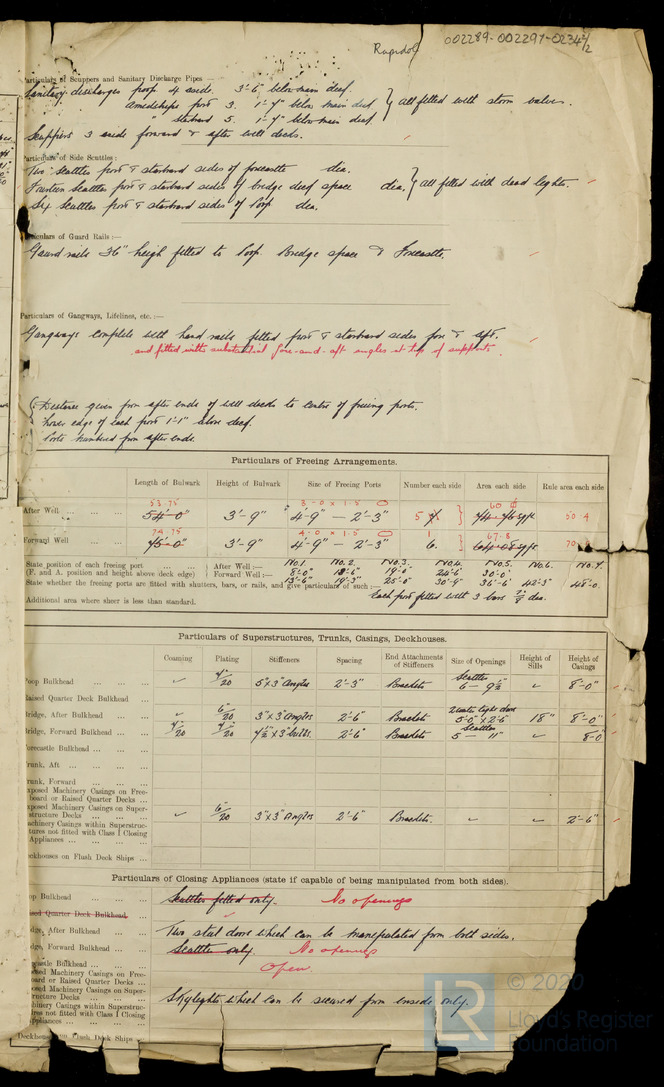 Rapidol
002289-002297-0234 1/2
Particulars of Scuppers and Sanitary Discharge Pipes —
Sanitary discharges poop 4 aside. 3'-6" below main deck.
Amedships port 3. 1'-7" below main deck
" starbard 5. 1'-7" below main deck
all fitted with storm valves.
Scuppers 3 aside forward & after well decks.
Particulars of Side Scuttles :
Two scuttles port & starbard sides of forecastle dia.
Fourteen scuttles port & starbard sides of bridge deck space dia.
Six scuttles port & starbard sides of Poop dia.
all fitted with dead lights.
Particulars of Guard Rails :—
Gaurd rails 36" heigh fitted to Poop. Bredge space & Forecastle.
Particulars of Gangways, Lifelines, etc. :—
Gangways complete with hand rails fitted port & starbard sides fore & aft.
and fitted with substantial fore-and-aft angles at top of supports.
Distance given from after ends of well decks to centre of freeing ports.
Lower edge of each port 1'-1" above deck.
Ports numbered from after ends.
Particulars of Freeing Arrangements.
Length of Bulwark Height of Bulwark Size of Freeing Ports Number each side Area each side Rule area each side
53.75 3-0 x 1.5 60
After Well ... 54'-0" 3'-9" 4'-9" — 2'-3" 5 50.4
74.75 4.0 x 1.5 67.8
Forward Well 75'-0" 3'-9" 4'-9" — 2'-3" 6.
State position of each freeing port (F. and A. position and height above deck edge)
No.1. No.2. No.3. No.4. No.5. No.6. No.7.
After Well :— 8'-0" 19'-0" 24'-6" 30'-0"
Forward Well :— 13'-6" 19'-3" 25'-0" 30'-9" 36'-6" 42'-3" 48'-0.
State whether the freeing ports are fitted with shutters, bars, or rails, and give particulars of such :—
Each port fitted with 3 bars 7/8" dia.
Additional area where sheer is less than standard.
Particulars of Superstructures, Trunks, Casings, Deckhouses.
Coaming Plating Stiffeners Spacing End Attachments of Stiffeners Size of Openings Height of Sills Height of Casings
Poop Bulkhead ... 5"x3" Angles 2'-3" Brackets Scuttles 6 — 9½" 8'-0"
Raised Quarter Deck Bulkhead
Bridge, After Bulkhead ... 6/20 3"x3" Angles 2'-6" Brackets 2 water tight doors 5'-0" x 2'-6" 18" 8'-0"
Bridge, Forward Bulkhead ... 2'-6" Brackets Scuttles 5 — 11" 8'-0
Forecastle Bulkhead ...
Trunk, Aft ...
Trunk, Forward ...
Exposed Machinery Casings on Freeboard or Raised Quarter Decks ...
Exposed Machinery Casings on Superstructure Decks ... 6/20 3"x3" Angles 2'-6" Brackets. 2'-6"
Machinery Casings within Superstructures not fitted with Class I Closing Appliances ...
Deckhouses on Flush Deck Ships ...
Particulars of Closing Appliances (state if capable of being manipulated from both sides).
Poop Bulkhead Scuttles fitted only. No openings
Raised Quarter Deck Bulkhead
Bridge, After Bulkhead ... Two steel doors which can be manipulated from both sides.
Bridge, Forward Bulkhead ... Scuttles only. No openings
Forecastle Bulkhead ... Open.
Exposed Machinery Casings on Freeboard or Raised Quarter Decks ...
Exposed Machinery Casings on Superstructure Decks ... Skylights which can be secured from inside only.
Machinery Casings within Superstructures not fitted with Class I Closing Appliances ...
Deckhouses on Flush Deck Ships ...
LR © 2020
Lloyd's Register
Foundation